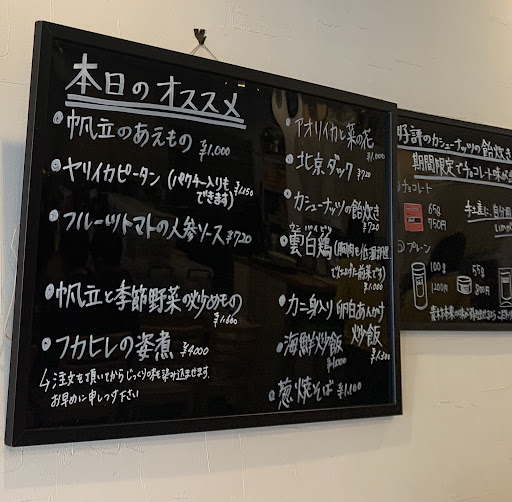 本日のオススメ
・帆立のあえもの ¥1,000
・ヤリイカピータン (パクチー入りも できます) ¥1,150
・フルーツトマトの人参ソース ¥720
・帆立と季節野菜の炒めもの
¥1,600
・フカヒレの姿煮 ¥4,000
↳注文を頂いてからじっくり味を染み込ませます。
お早めに申しつけ下さい
・アオリイカと菜の花
¥1,000
・北京ダック ¥720
・カシューナッツの飴炊き
¥720
・雲白鶏
で仕上げた前菜です)
¥1,000
・カニ身入り卵白あんかけ
炒飯
¥1,300
・海鮮炒飯
¥1,000
・葱焼そば ¥1,100
好評のカシューナッツの飴炊き
期間限定でチョコレート味が
チョコレート
65g
750円
プレーン
100g
1200円
55g
800円